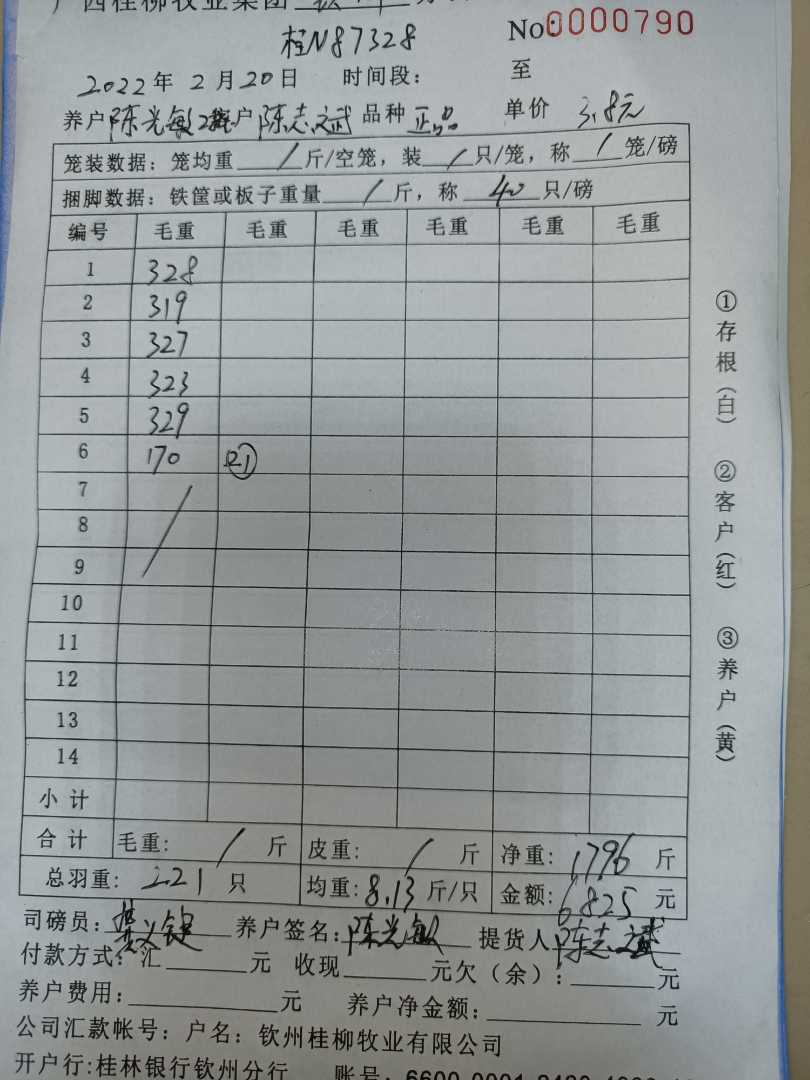 广西桂柳牧业集团
桂N87328
No:0000790
2022年2月20日 时间段: 至
养户陈光敏 客户陈志斌 品种 正品 单价 3.8元
笼装数据: 笼均重 / 斤/空笼, 装 / 只/笼, 称 / 笼/磅
捆脚数据: 铁筐或板子重量 / 斤, 称 40 只/磅
编号 毛重 毛重 毛重 毛重 毛重 毛重
1 328
2 319
3 327
4 323
5 329
6 170 21
7
8
9
10
11
12
13
14
小计
合计 毛重: / 斤 皮重: / 斤 净重: 1796 斤
总羽重: 221 只 均重: 8.13 斤/只 金额: 6825 元
司磅员: 养户签名: 陈光敏 提货人 陈志斌
付款方式: 汇 元 收现 元欠(余): 元
养户费用: 元 养户净金额: 元
公司汇款帐号: 户名: 钦州桂柳牧业有限公司
开户行:桂林银行钦州分行 账号:
①存根(白) ②客户(红) ③养户(黄)